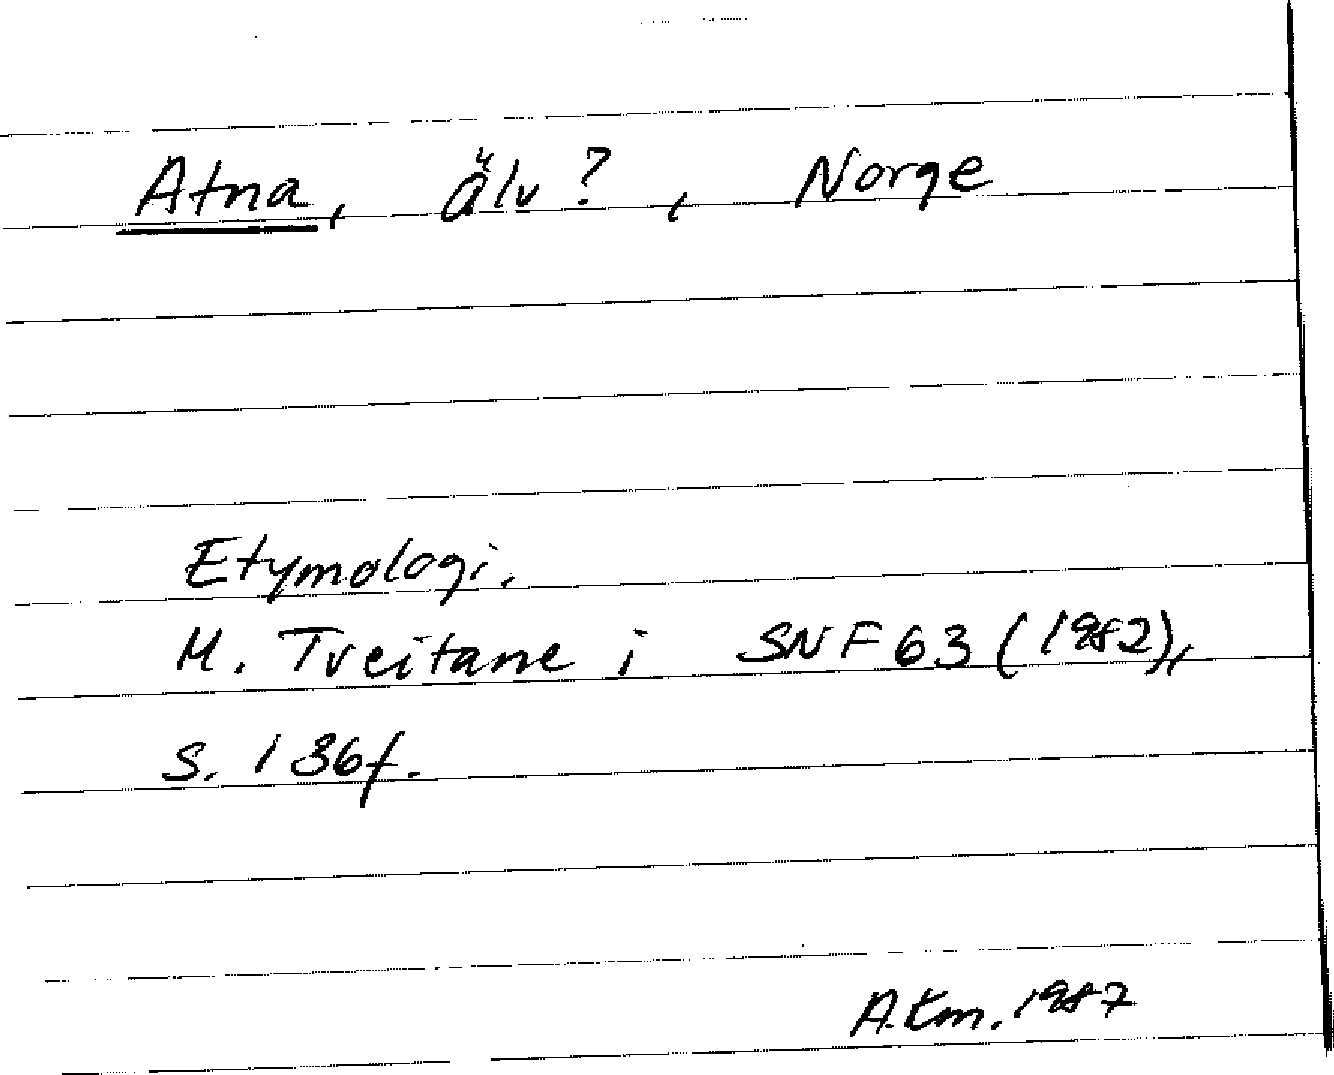 Atna, älv?, Norge
Etymologi.
M. Tveitane i SNF 63 (1982),
s. 136f.
A.Em. 1987